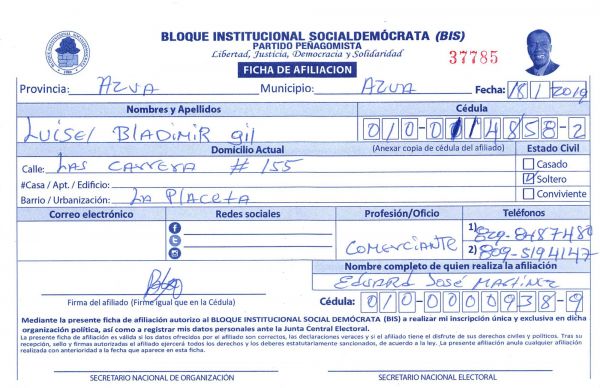 BLOQUE INSTITUCIONAL SOCIALDEMÓCRATA (BIS)
PARTIDO PEÑAGOMISTA
Libertad, Justicia, Democracia y Solidaridad
37785
FICHA DE AFILIACION
Provincia: AZUA Municipio: AZUA Fecha: 18/1/2019
Nombres y Apellidos Cédula
LUISEL BLADIMIR gil 010-0114858-2
Domicilio Actual (Anexar copia de cédula del afiliado) Estado Civil
Calle: LAS CARRERA # 155 Casado
#Casa / Apt. / Edificio: Soltero
Barrio / Urbanización: LA PLACETA Conviviente
Correo electrónico Redes sociales Profesión/Oficio Teléfonos
1) 829-8487480
COMERCIANTE 2) 809-5194147
Nombre completo de quien realiza la afiliación
EDUARD JOSÉ MARTINEZ
Firma del afiliado (Firme igual que en la Cédula) Cédula: 010-0000938-9
Mediante la presente ficha de afiliación autorizo al BLOQUE INSTITUCIONAL SOCIAL DEMÓCRATA (BIS) a realizar mi inscripción única y exclusiva en dicha
organización política, así como a registrar mis datos personales ante la Junta Central Electoral.
La presente ficha de afiliación es válida si los datos ofrecidos por el afiliado son correctos, las declaraciones veraces y si el afiliado tiene el disfrute de sus derechos civiles y políticos. Tras su
recepción, sello y firmas autorizadas el afiliado ejercerá todos los derechos y los deberes estatutariamente sancionados, de acuerdo a la ley. La presente afiliación anula cualquier afiliación
realizada con anterioridad a la fecha que aparece en esta ficha.
SECRETARIO NACIONAL DE ORGANIZACIÓN SECRETARIO NACIONAL ELECTORAL